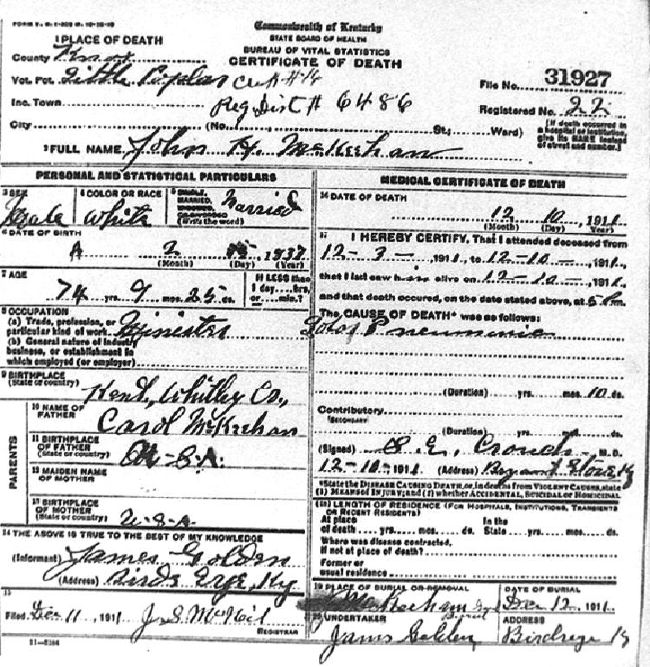 FORM V. S.
Commonwealth of Kentucky
STATE BOARD OF HEALTH
BUREAU OF VITAL STATISTICS
CERTIFICATE OF DEATH
1 PLACE OF DEATH
County Knox
Vot. Pct. Little Poplar
Inc. Town Reg Dist # 6486
City (No. St.; Ward)
File No. 31927
Registered No. 22
(If death occurred in a hospital or institution, give its NAME instead of street and number.)
2 FULL NAME John H. McKeehan
PERSONAL AND STATISTICAL PARTICULARS
3 SEX Male
4 COLOR OR RACE White
5 SINGLE, MARRIED, WIDOWED OR DIVORCED (Write the word) Married
6 DATE OF BIRTH
2 1837
(Month) (Day) (Year)
7 AGE
74 yrs. 9 mos. 25 ds.
If LESS than 1 day... hrs. or... min.?
8 OCCUPATION
(a) Trade, profession, or particular kind of work Minister
(b) General nature of industry business, or establishment in which employed (or employer)
9 BIRTHPLACE
(State or country) Kent, Whitley Co.,
PARENTS
10 NAME OF FATHER Carol McKeehan
11 BIRTHPLACE OF FATHER
(State or country) U.S.A.
12 MAIDEN NAME OF MOTHER
13 BIRTHPLACE OF MOTHER
(State or country) U.S.A
14 THE ABOVE IS TRUE TO THE BEST OF MY KNOWLEDGE
(Informant) James Golden
(Address) Birds Eye, Ky
15
Filed Dec 11, 1911 J. S. McNeil
REGISTRAR
MEDICAL CERTIFICATE OF DEATH
16 DATE OF DEATH
12 10, 1911.
(Month) (Day) (Year)
17 I HEREBY CERTIFY, That I attended deceased from
12-3-, 1911, to 12-10-, 1911,
that I last saw him alive on 12-10-, 1911,
and that death occurred, on the date stated above, at 5 Pm.
The CAUSE OF DEATH* was as follows:
Pneumonia
(Duration) yrs. mos. 10 ds.
Contributory
SECONDARY
(Duration) yrs. mos. ds.
(Signed) Crouch, M.D.
12-10-, 1911 (Address)
*State the DISEASE CAUSING DEATH, or, in deaths from VIOLENT CAUSES, state (1) MEANS OF INJURY; and (2) whether ACCIDENTAL, SUICIDAL or HOMICIDAL.
18 LENGTH OF RESIDENCE (FOR HOSPITALS, INSTITUTIONS, TRANSIENTS OR RECENT RESIDENTS)
At place of death yrs. mos. ds.
In the State yrs. mos. ds.
Where was disease contracted, if not at place of death?
Former or usual residence
19 PLACE OF BURIAL OR REMOVAL
McKeehan
DATE OF BURIAL
Dec 12, 1911.
20 UNDERTAKER
James Golden
ADDRESS
Birdseye Ky